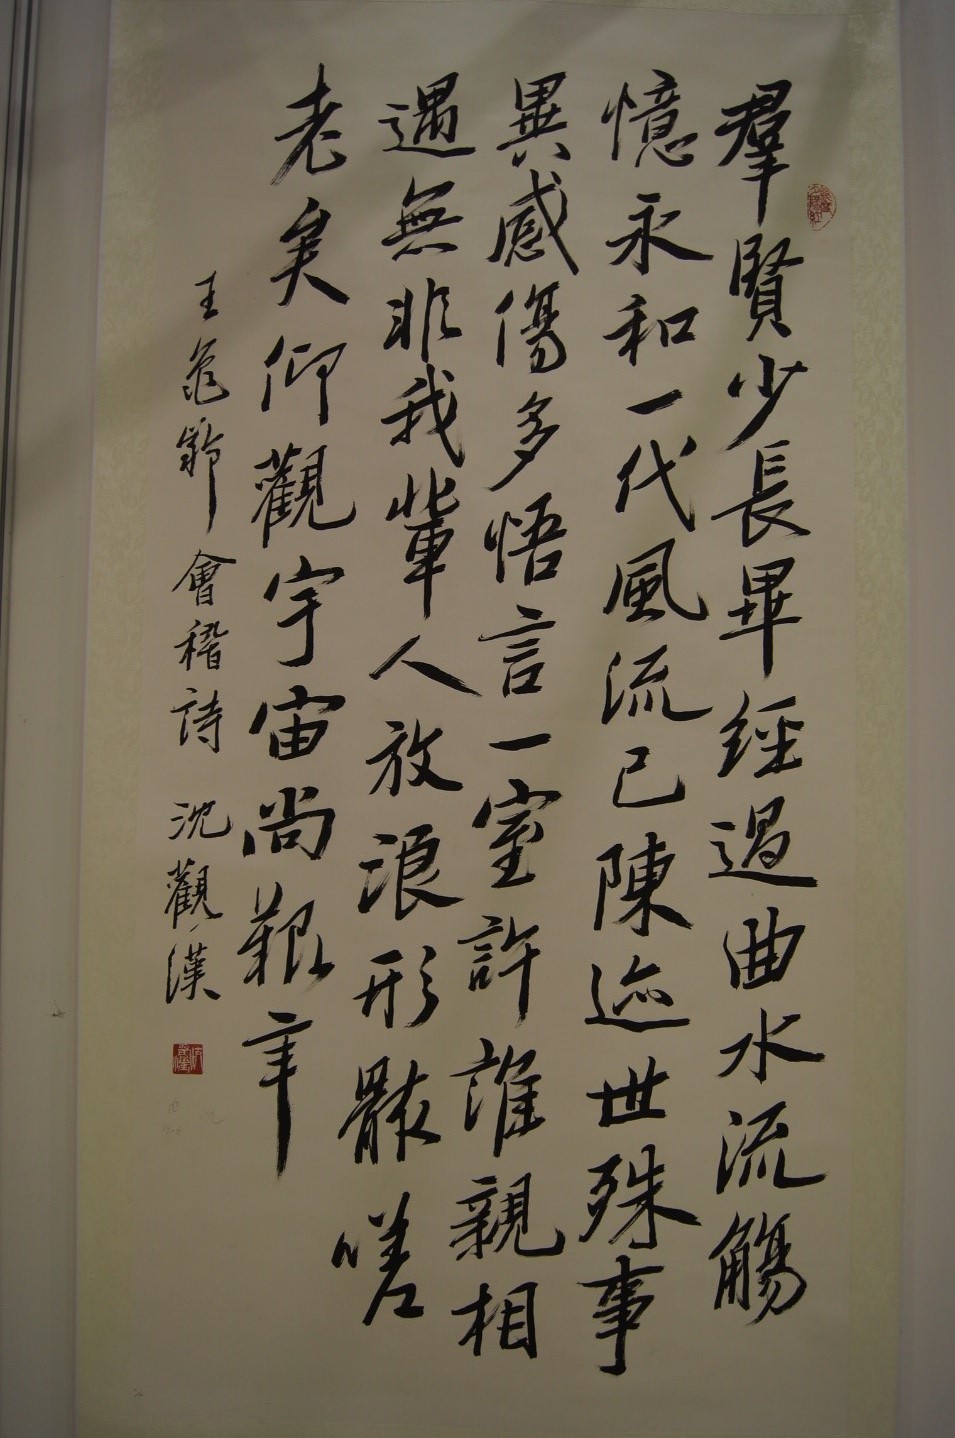 羣賢少長畢經過曲水流觴
憶永和一代風流已陳迹世殊事
異感傷多悟言一室許誰親相
遇無非我輩人放浪形骸嗟
老矣仰觀宇宙尚艱辛
王龜齡會稽詩 沈觀漢